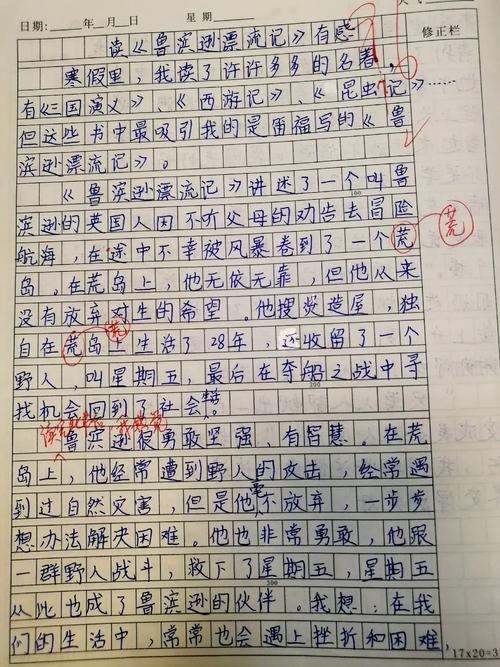 日期：　年　月　日　星期
修正栏
读《鲁滨逊漂流记》有感
寒假里，我读了许许多多的名著，
有《三国演义》、《西游记》、《昆虫记》……
但这些书中最吸引我的是笛福写的《鲁
滨逊漂流记》。
《鲁滨逊漂流记》讲述了一个叫鲁
100
滨逊的英国人因不听父母的劝告去冒险
航海，在途中不幸被风暴卷到了一个荒
荒
岛。在荒岛上，他无依无靠，但他从来
没有放弃对生的希望。他搜 造屋，独
荒
自在荒岛上生活了28年，还收留了一个
野人，叫星期五，最后在夺船之战中寻
200
找机会回到了社会。
鲁滨逊很勇敢坚强、有智慧。在荒
岛上，他经常遭到野人的攻击，经常遇
到过自然灾害，但是他毫不放弃，一步步
想办法解决困难。他也非常勇敢，他跟
一群野人战斗，救下了星期五，星期五
300
从此也成了鲁滨逊的伙伴。我想：在我
们的生活中，常常也会遇上挫折和困难，
17×20=3